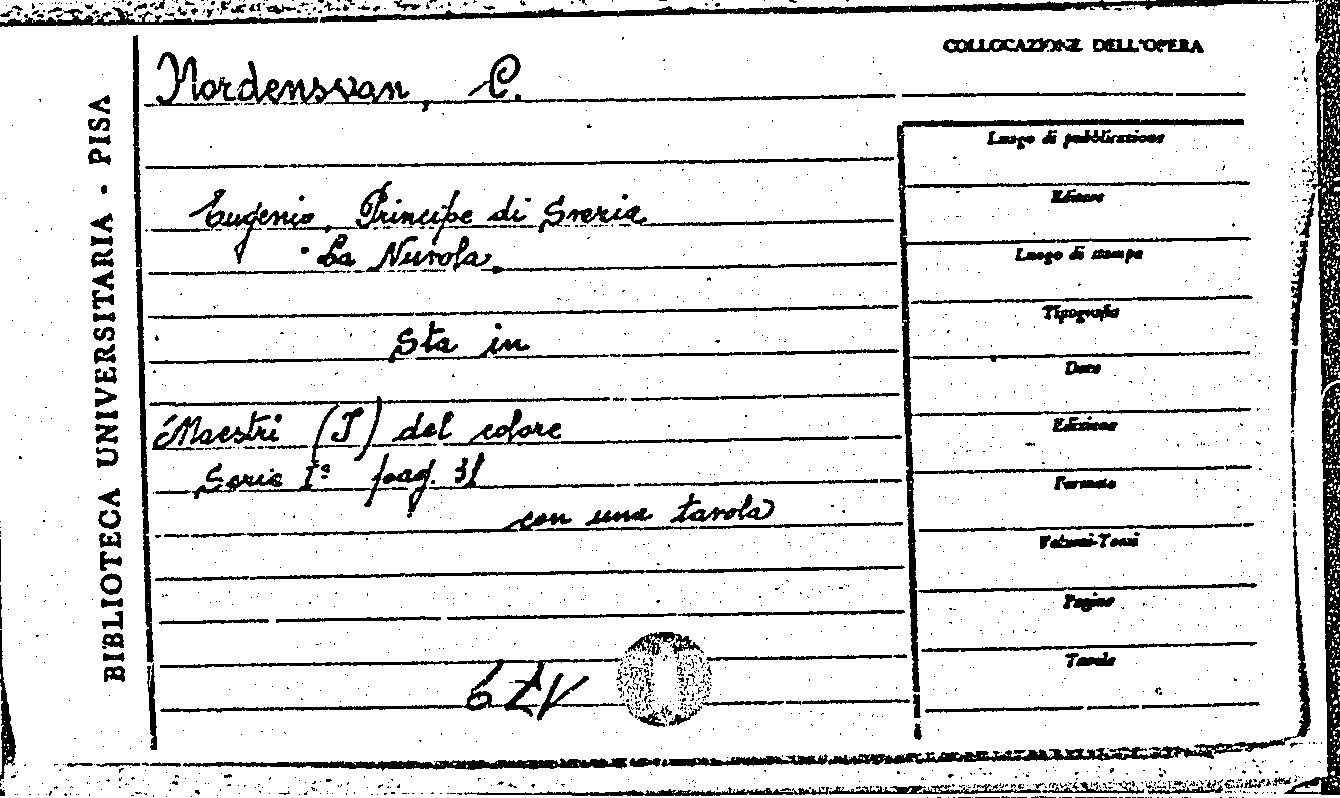 COLLOCAZIONE DELL'OPERA
Nordensvan, C.
Eugenio, Principe di Svezia
La Nuvola
Sta in
Maestri (I) del colore
Serie Iª pag. 31
con una tavola
BIBLIOTECA UNIVERSITARIA - PISA
Luogo di pubblicazione
Editore
Luogo di stampa
Tipografia
Data
Edizione
Formato
Volumi-Tomi
Pagine
Tavole